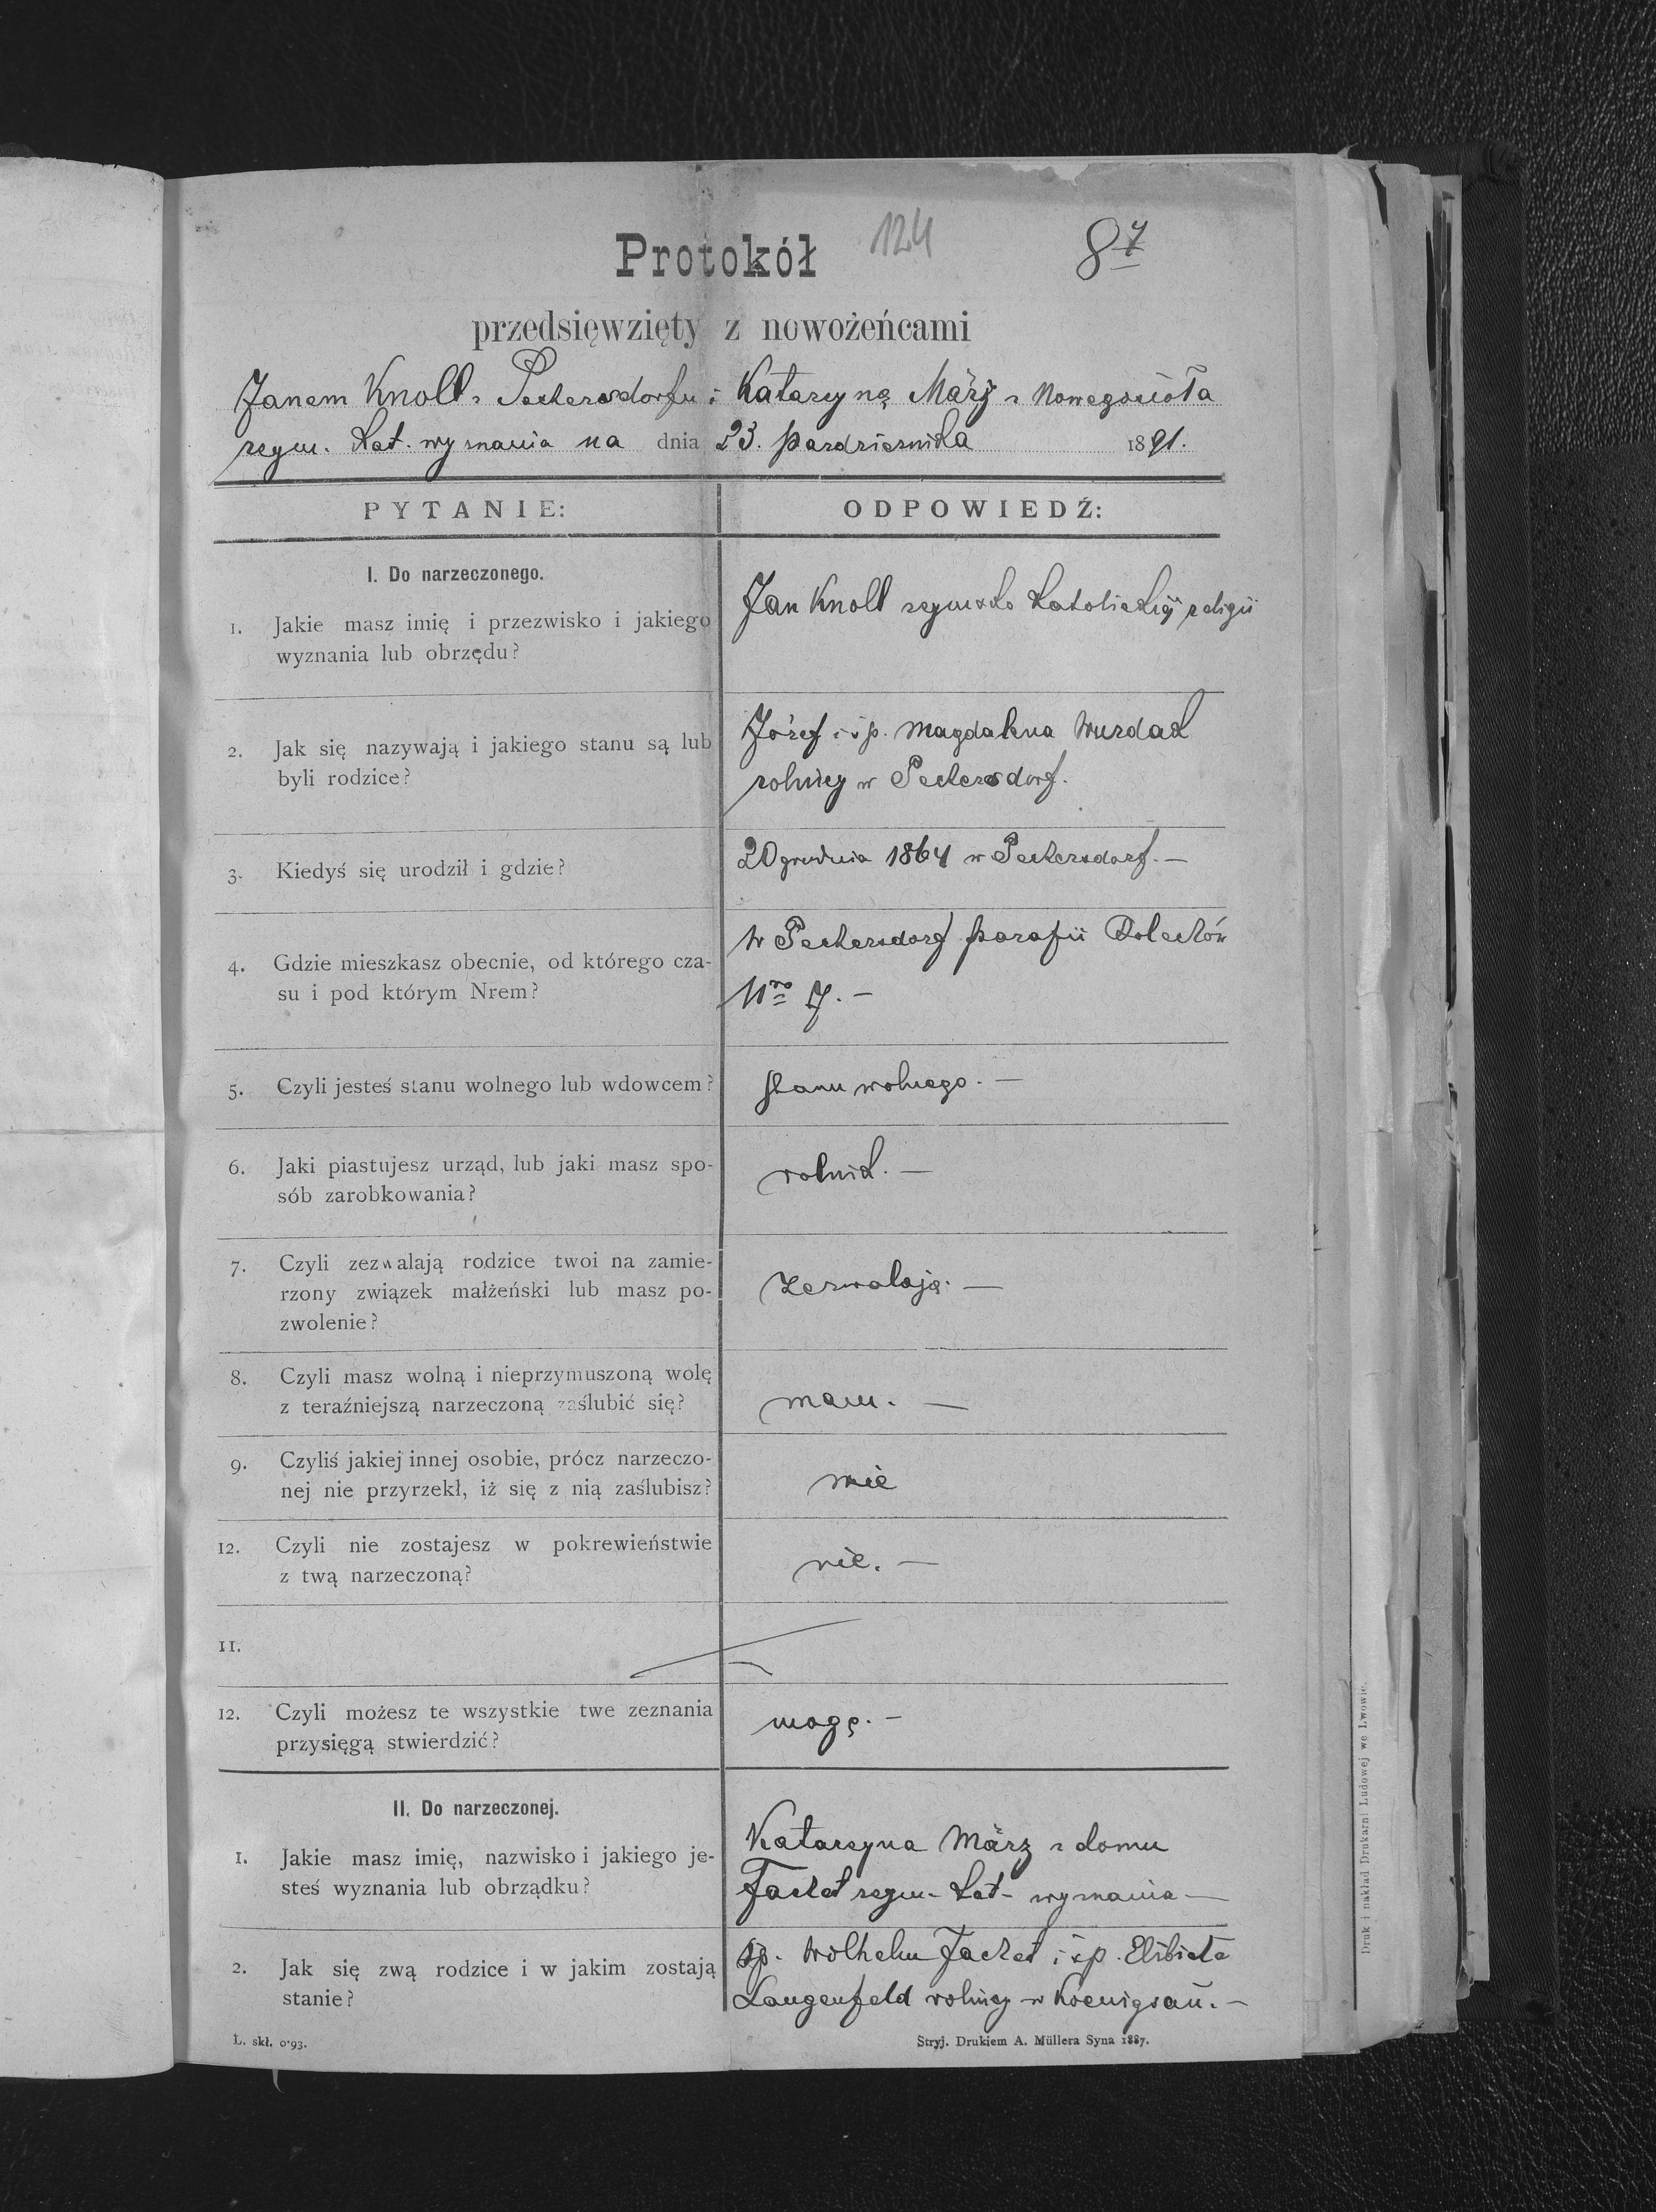 124
87
Protokół
przedsięwzięty z nowożeńcami
Janem Knoll z Peckersdorfu i Katarzyną März z Nowegosioła
rzym. kat. wyznania na dnia 23. października 1891.
PYTANIE: ODPOWIEDŹ:
I. Do narzeczonego.
1. Jakie masz imię i przezwisko i jakiego
wyznania lub obrzędu?
Jan Knoll rzymsko katolickiej religii
2. Jak się nazywają i jakiego stanu są lub
byli rodzice?
Józef i śp. Magdalena Wurdak
rolnicy w Peckersdorf.
3. Kiedyś się urodził i gdzie?
20 grudnia 1864 w Peckersdorf. —
4. Gdzie mieszkasz obecnie, od którego cza-
su i pod którym Nrem?
w Peckersdorf parafii Bolechów
Nro 7. —
5. Czyli jesteś stanu wolnego lub wdowcem?
stanu wolnego. —
6. Jaki piastujesz urząd, lub jaki masz spo-
sób zarobkowania?
rolnik. —
7. Czyli zezwalają rodzice twoi na zamie-
rzony związek małżeński lub masz po-
zwolenie?
zezwalają. —
8. Czyli masz wolną i nieprzymuszoną wolę
z teraźniejszą narzeczoną zaślubić się?
mam. —
9. Czyliś jakiej innej osobie, prócz narzeczo-
nej nie przyrzekł, iż się z nią zaślubisz?
nie
12. Czyli nie zostajesz w pokrewieństwie
z twą narzeczoną?
nie. —
11.
12. Czyli możesz te wszystkie twe zeznania
przysięgą stwierdzić?
mogę. —
II. Do narzeczonej.
1. Jakie masz imię, nazwisko i jakiego je-
steś wyznania lub obrządku?
Katarzyna März z domu
Jacket rzym. kat. wyznania —
2. Jak się zwą rodzice i w jakim zostają
stanie?
śp. Wilhelm Jacket i śp. Elżbieta
Langenfeld rolnicy w Koenigsau. —
L. skł. 0·93.
Stryj. Drukiem A. Müllera Syna 1887.
Druk i nakład Drukarni Ludowej we Lwowie.